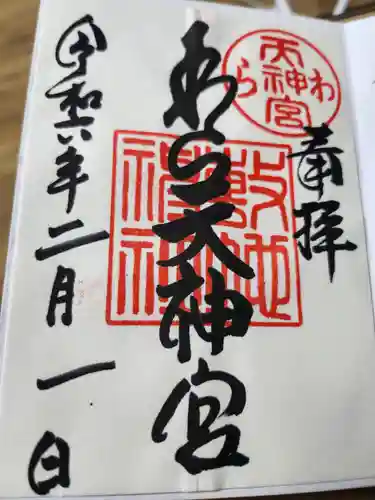 奉拝
わら
天神宮
敷地
神社
わら天神宮
令和六年二月一日